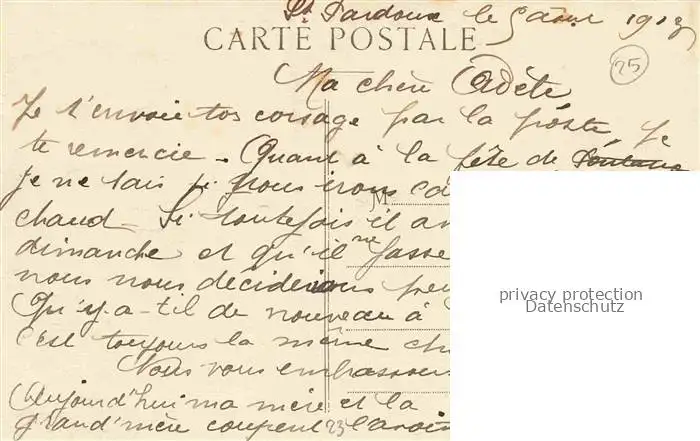 St Pardoux le 5 août 1913
CARTE POSTALE
25
Ma chère Adète
Je t'envoie tos corsage par la poste, je
te remercie. Quant à la fête de
je ne sais si nous irons
M
chaud Si toutefois il
dimanche et qu'il ne fasse
nous nous déciderons
Qu'y-a-til de nouveau à
c'est toujours la même
Nous vous embrassons
Aujourd'hui ma mère et la
grand'mère coupent 23 l'avoine
privacy protection
Datenschutz